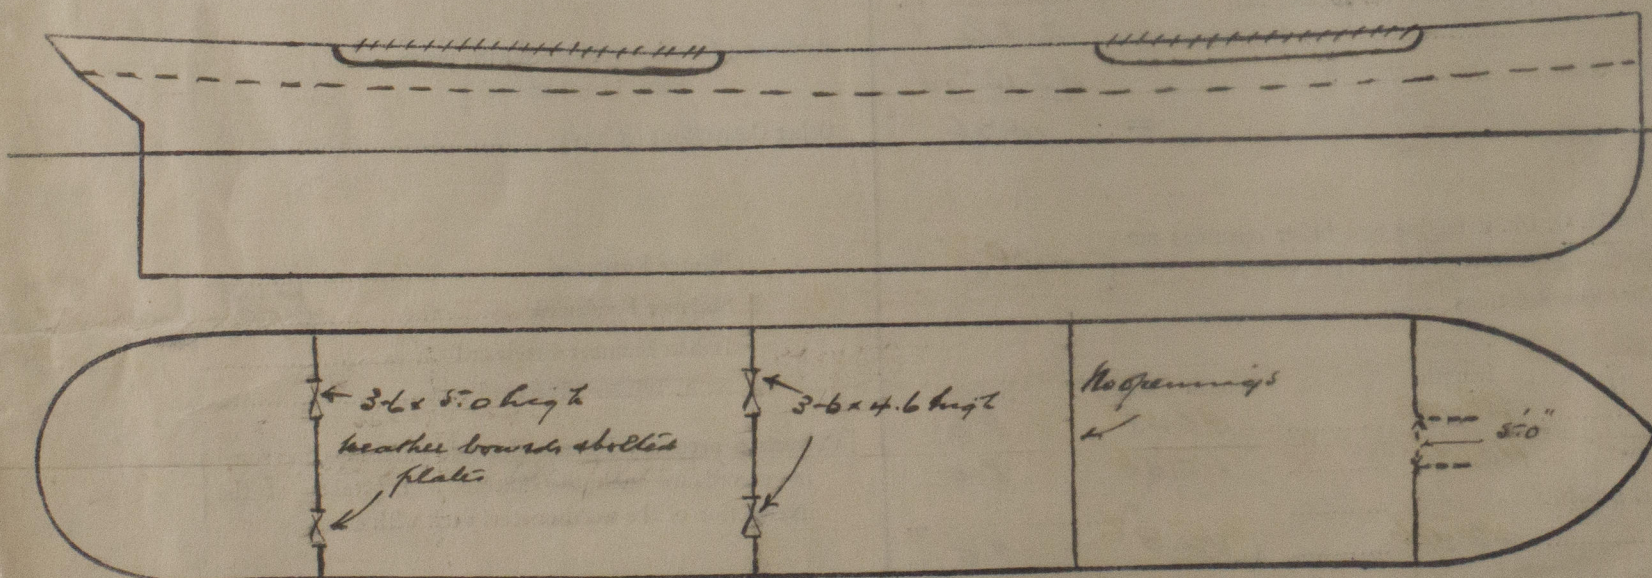 3-6 x 5.0 high
weather boards & bolted
plates
3-6 x 4.6 high
No openings
5'.0"